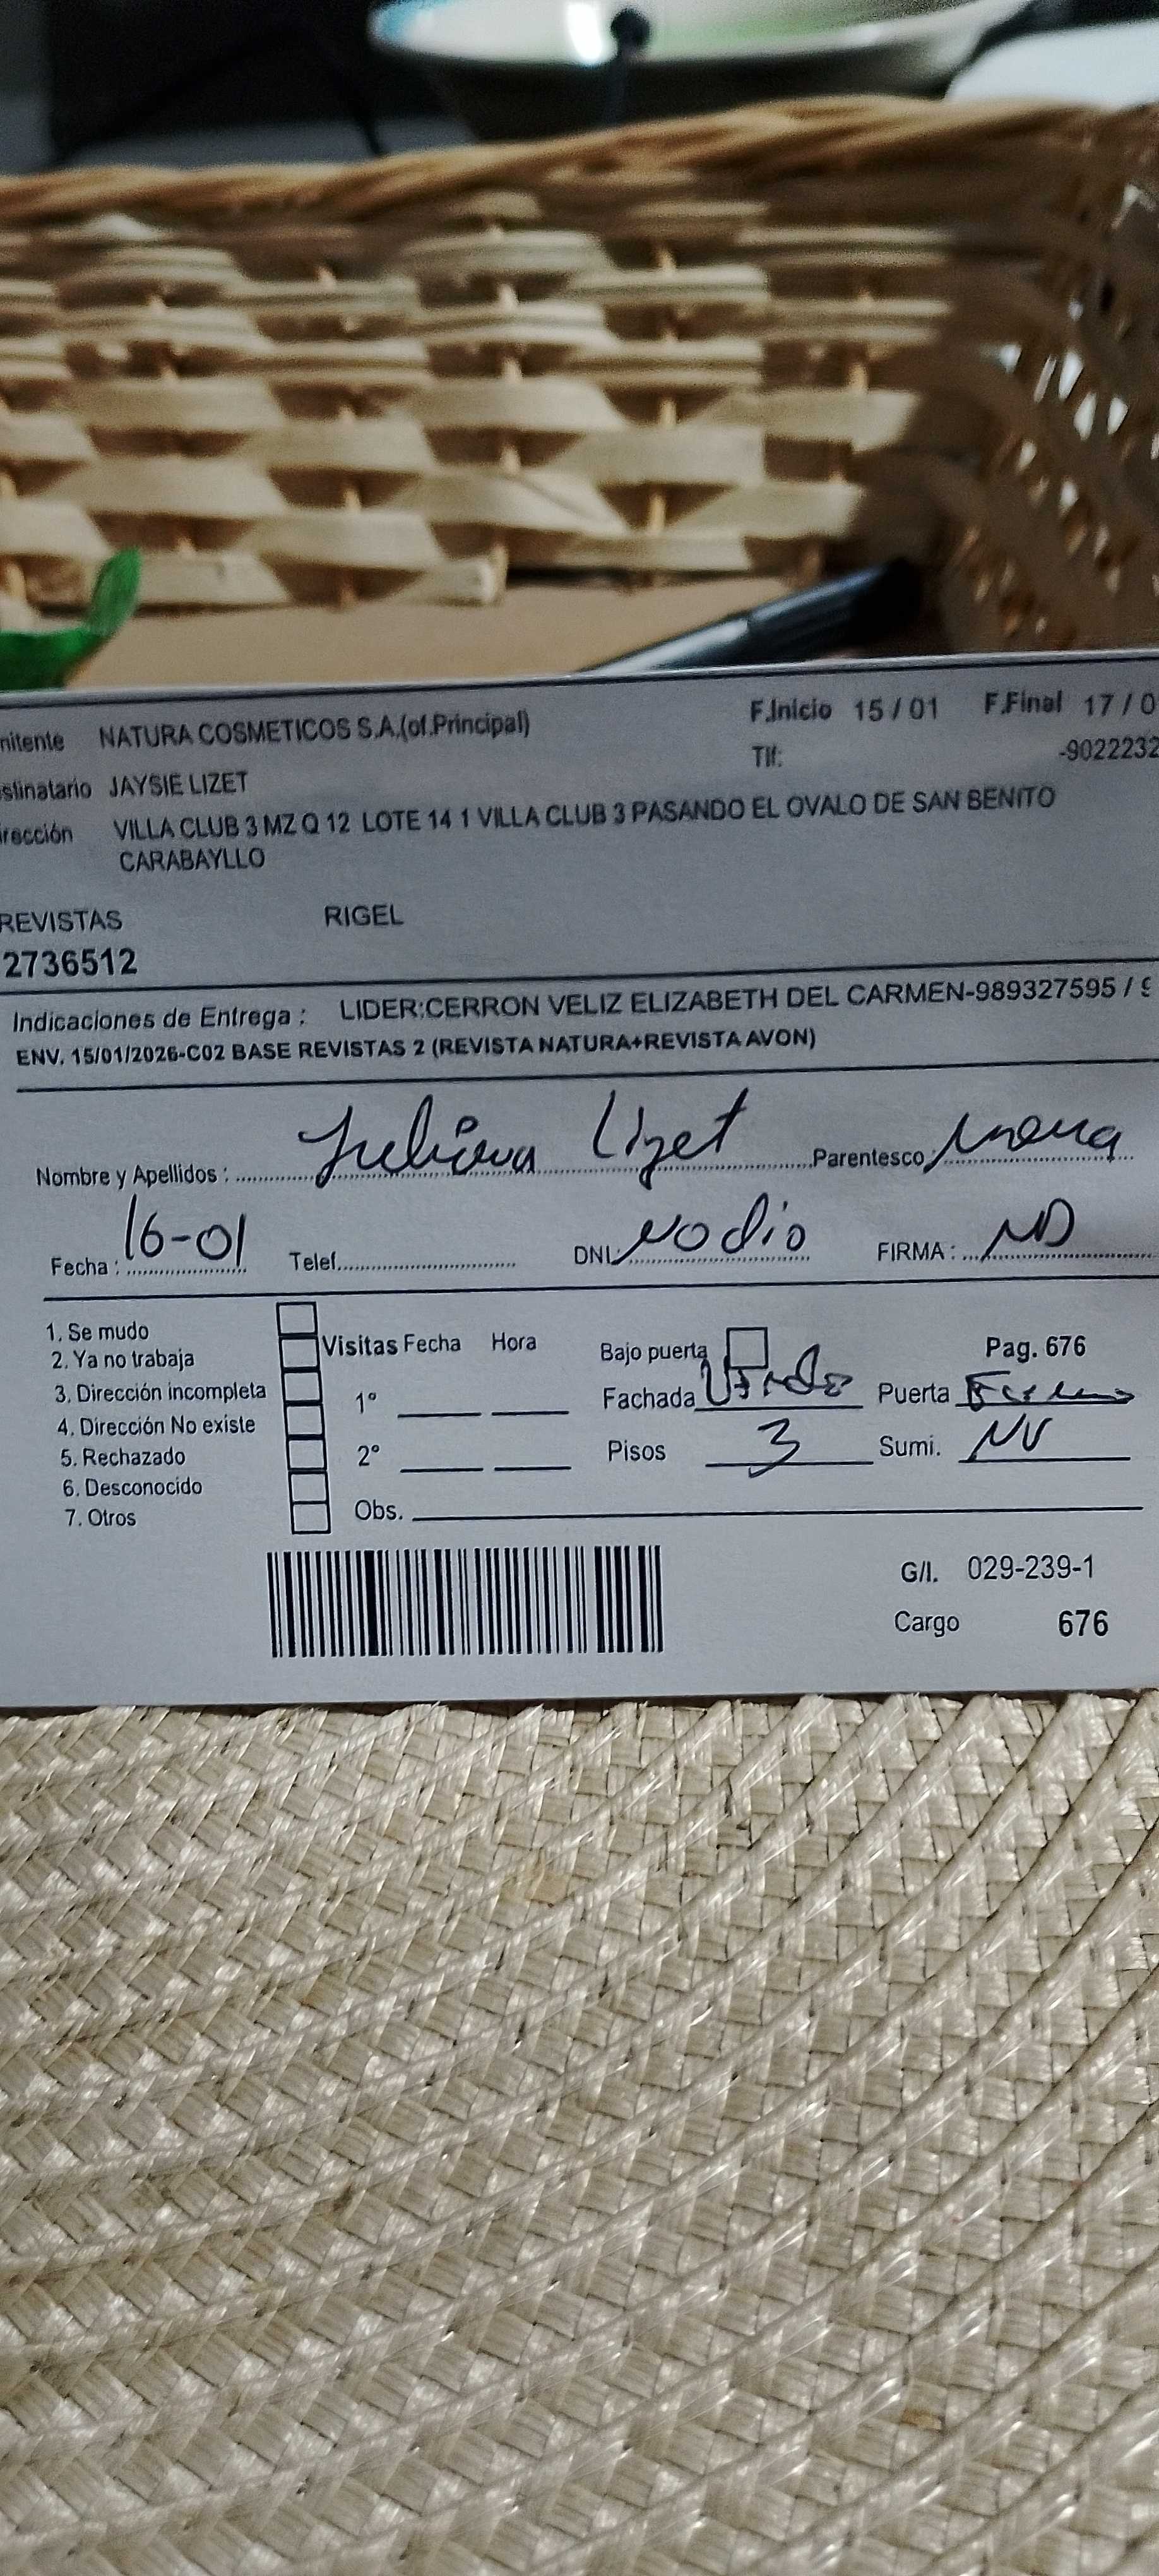 nitente NATURA COSMETICOS S.A.(of.Principal) F.Inicio 15 / 01 F.Final 17 / 0
Tlf: -9022232
stinatario JAYSIE LIZET
irección VILLA CLUB 3 MZ Q 12 LOTE 14 1 VILLA CLUB 3 PASANDO EL OVALO DE SAN BENITO
CARABAYLLO
REVISTAS RIGEL
2736512
Indicaciones de Entrega : LIDER:CERRON VELIZ ELIZABETH DEL CARMEN-989327595 / 9
ENV. 15/01/2026-C02 BASE REVISTAS 2 (REVISTA NATURA+REVISTA AVON)
Nombre y Apellidos : Lizet Parentesco
Fecha : 16-01 Telef. DNI No dio FIRMA : ND
1. Se mudo
2. Ya no trabaja
3. Dirección incompleta
4. Dirección No existe
5. Rechazado
6. Desconocido
7. Otros
Visitas Fecha Hora
1°
2°
Obs.
Bajo puerta Pag. 676
Fachada Puerta
Pisos 3 Sumi. NV
G/I. 029-239-1
Cargo 676